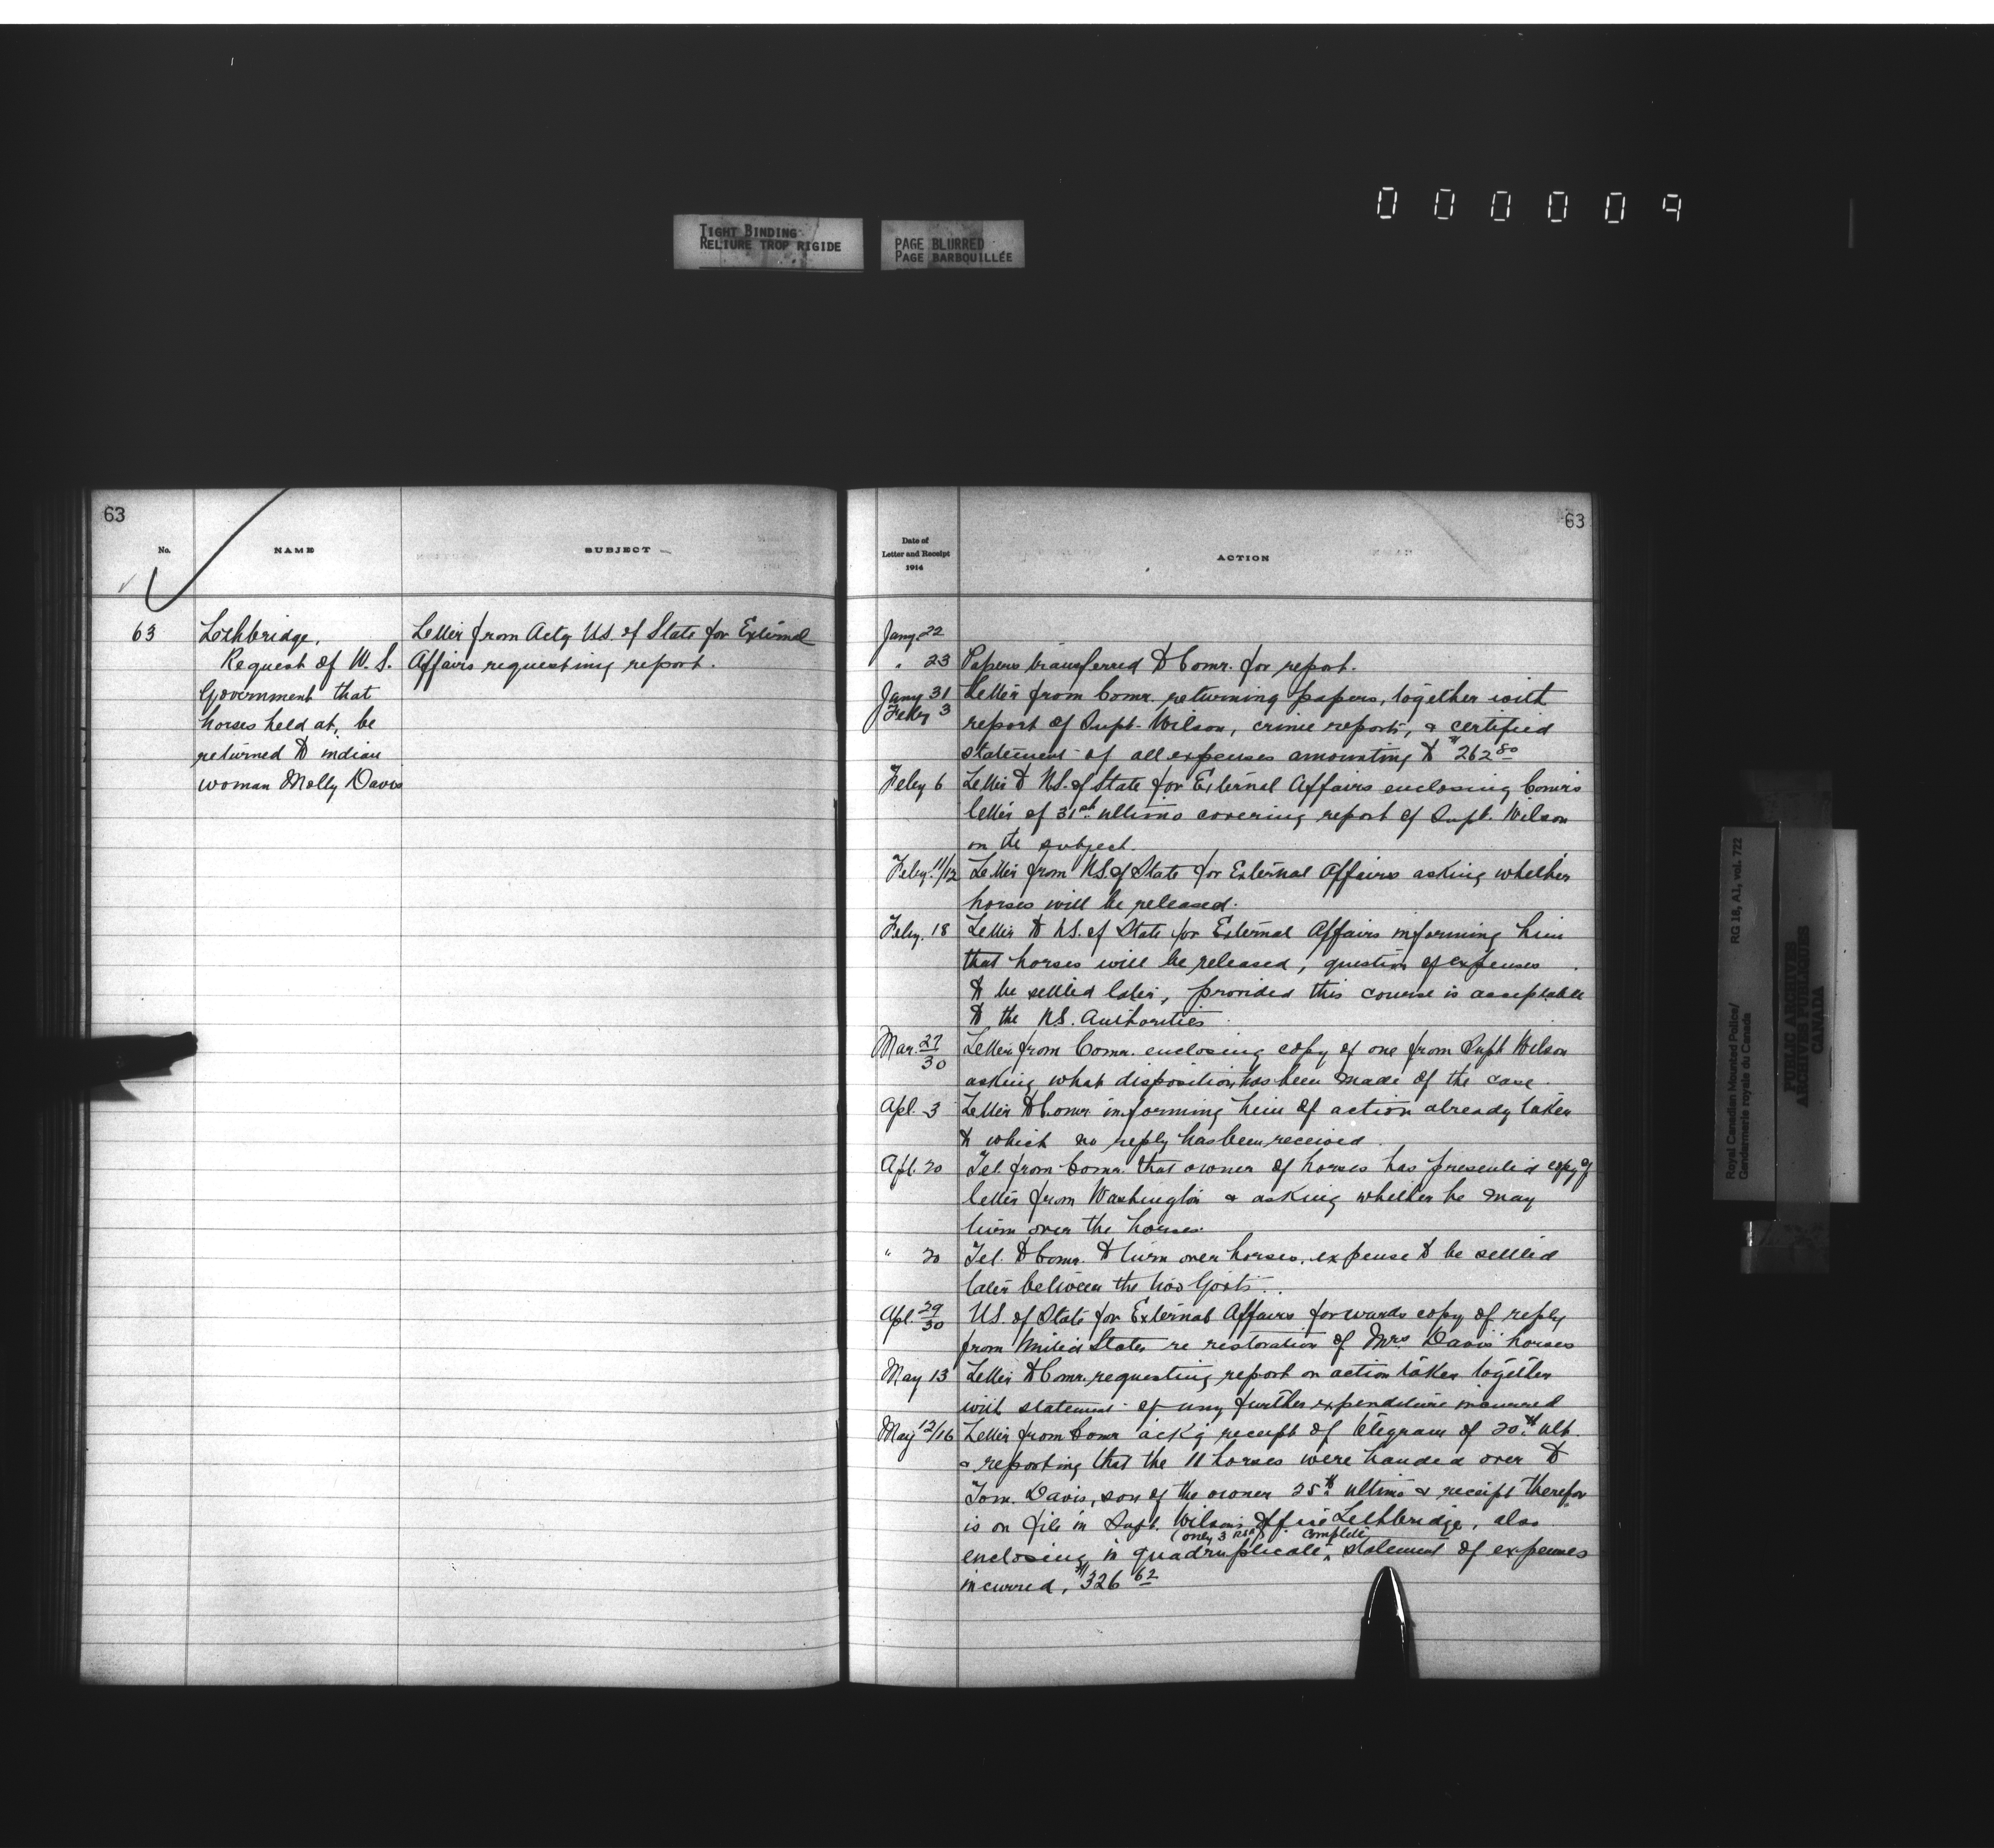 000009
TIGHT BINDING
RELIURE TROP RIGIDE
PAGE BLURRED
PAGE BARBOUILLÉE
63
No.
NAME
SUBJECT
63 Lethbridge.
Request of U. S.
Government that
horses held at, be
returned to indian
woman Molly Davis
Letter from Actg U.S. of State for External
Affairs requesting report.
63
Date of
Letter and Receipt
1914
ACTION
Jany. 22
" 23 Papers transferred to Comr. for report.
Jany 31 Letter from Comr. returning papers, together with
Feby 3 report of Supt. Wilson, crime reports, & certified
statement of all expenses amounting to $262.80
Feby 6 Letter to U.S. of State for External Affairs enclosing Comr's
letter of 31st ultimo covering report of Supt. Wilson
on the subject.
Feby. 11/12 Letter from U.S. of State for External Affairs asking whether
horses will be released.
Feby. 18 Letter to U.S. of State for External Affairs informing him
that horses will be released, question of expenses
to be settled later, provided this course is acceptable
to the U.S. Authorities.
Mar. 27/30 Letter from Comr. enclosing copy of one from Supt Wilson
asking what disposition has been made of the case.
Apl. 3 Letter to Comr. informing him of action already taken
to which no reply has been received.
Apl. 20 Tel. from Comr. that owner of horses has presented copy of
letter from Washington & asking whether he may
turn over the horses.
" 20 Tel. to Comr. to turn over horses, expense to be settled
later between the two Govts.
Apl. 29/30 U.S. of State for External Affairs forwards copy of reply
from United States re restoration of Mrs Davis' horses
May 13 Letter to Comr. requesting report on action taken together
with statement of any further expenditure incurred
May 12/16 Letter from Comr ack'g receipt of telegram of 20th ult.
& reporting that the 11 horses were handed over to
Tom. Davis, son of the owner 25th ultimo & receipt therefor
is on file in Supt. Wilson's Office Lethbridge, also
(only 3 ) complete
enclosing in quadruplicate statement of expenses
incurred, $326.62
Royal Canadian Mounted Police/
Gendarmerie royale du Canada
RG 18, A1, vol. 722
PUBLIC ARCHIVES
ARCHIVES PUBLIQUES
CANADA